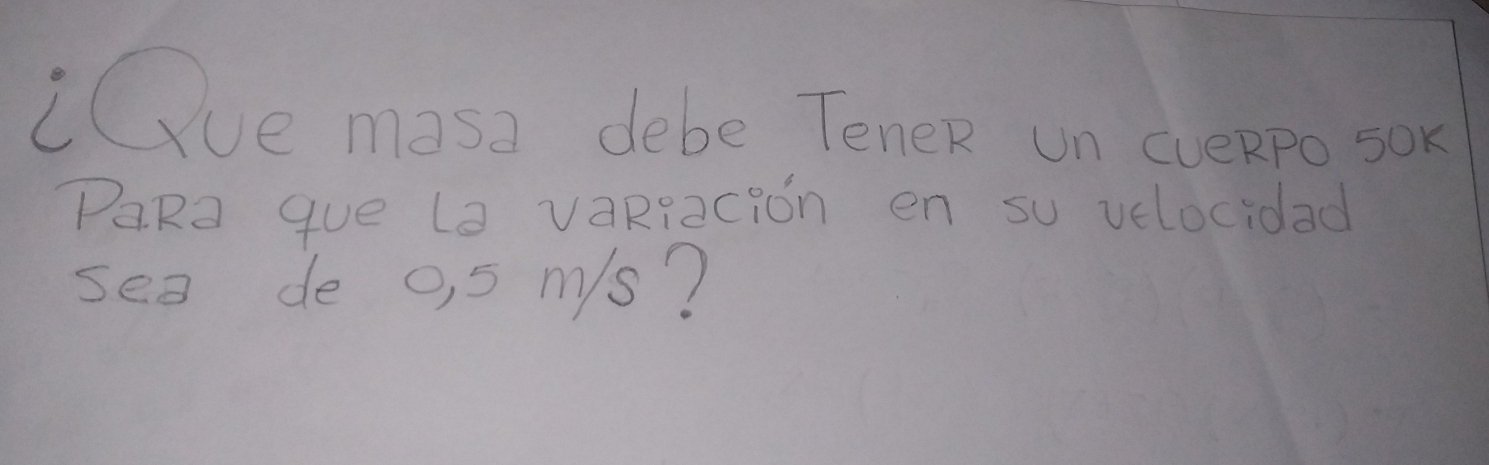 ¿Que masa debe Tener un cuerpo 50K
Para que la variación en su velocidad
sea de 0,5 m/s?